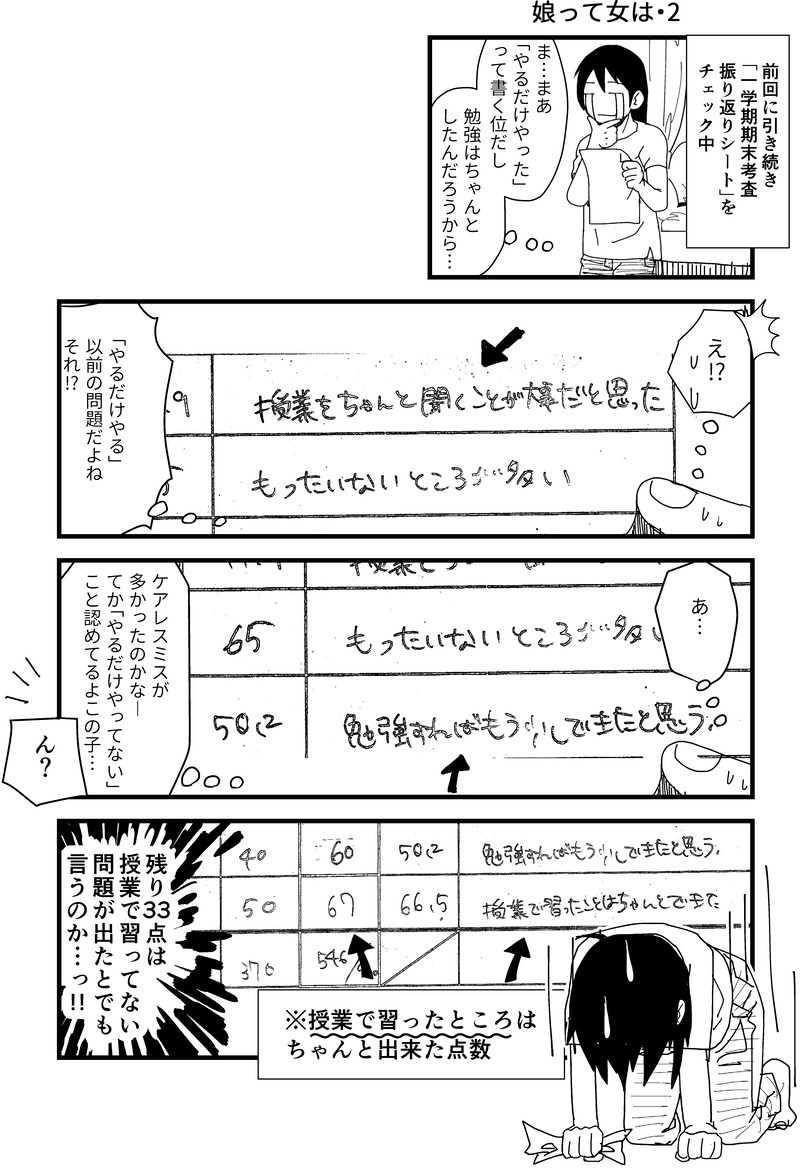 娘って女は・2
前回に引き続き
「一学期期末考査
振り返りシート」を
チェック中
ま…まあ
「やるだけやった」
って書く位だし
勉強はちゃんと
したんだろうから…
え!?
授業をちゃんと聞くことが大事だと思った
もったいないところが多い
「やるだけやる」
以前の問題だよね
それ!?
あ…
65
もったいないところが多い
50.2
勉強すればもう少しできたと思う。
ケアレスミスが
多かったのかなー
てか「やるだけやってない」
こと認めてるよこの子…
ん?
40 60 50.2 勉強すればもう少しできたと思う。
50 67 66.5 授業で習ったことはちゃんとできた
370
※授業で習ったところは
ちゃんと出来た点数
残り33点は
授業で習ってない
問題が出たとでも
言うのか…っ!!